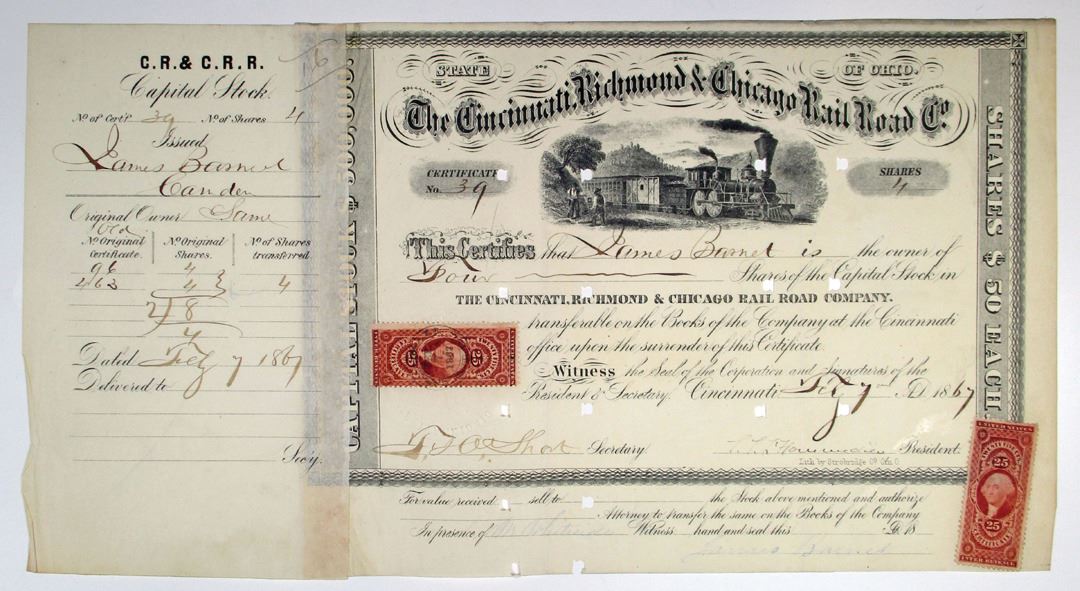 C.R. & C.R.R.
Capital Stock.
No of Cert. 39 No of Shares 4
Issued
James Barnet
Camden
Original Owner Same
Old
No Original Certificate. | No Original Shares. | No of Shares transferred
96 4
463 4 4
2) 8
4
Dated Feby 7 1867
Delivered to
Sec'y.
16
CAPITAL STOCK
STATE OF OHIO.
The Cincinnati, Richmond & Chicago Rail Road Co.
CERTIFICATE No. 39
SHARES 4
This Certifies that James Barnet is the owner of
Four Shares of the Capital Stock in
THE CINCINNATI, RICHMOND & CHICAGO RAIL ROAD COMPANY.
transferable on the Books of the Company at the Cincinnati
office upon the surrender of this Certificate.
Witness the Seal of the Corporation and Signatures of the
President & Secretary. Cincinnati Feby 7 AD. 1867
Secretary. President.
Lith by Strobridge & Co. Cin. O.
SHARES $50 EACH.
For value received sell to the Stock above mentioned and authorize
Attorney to transfer the same on the Books of the Company
In presence of Witness hand and seal this 18
James Barnet
25 25
UNITED STATES
25
25
CERTIFICATE
INTER. REVENUE